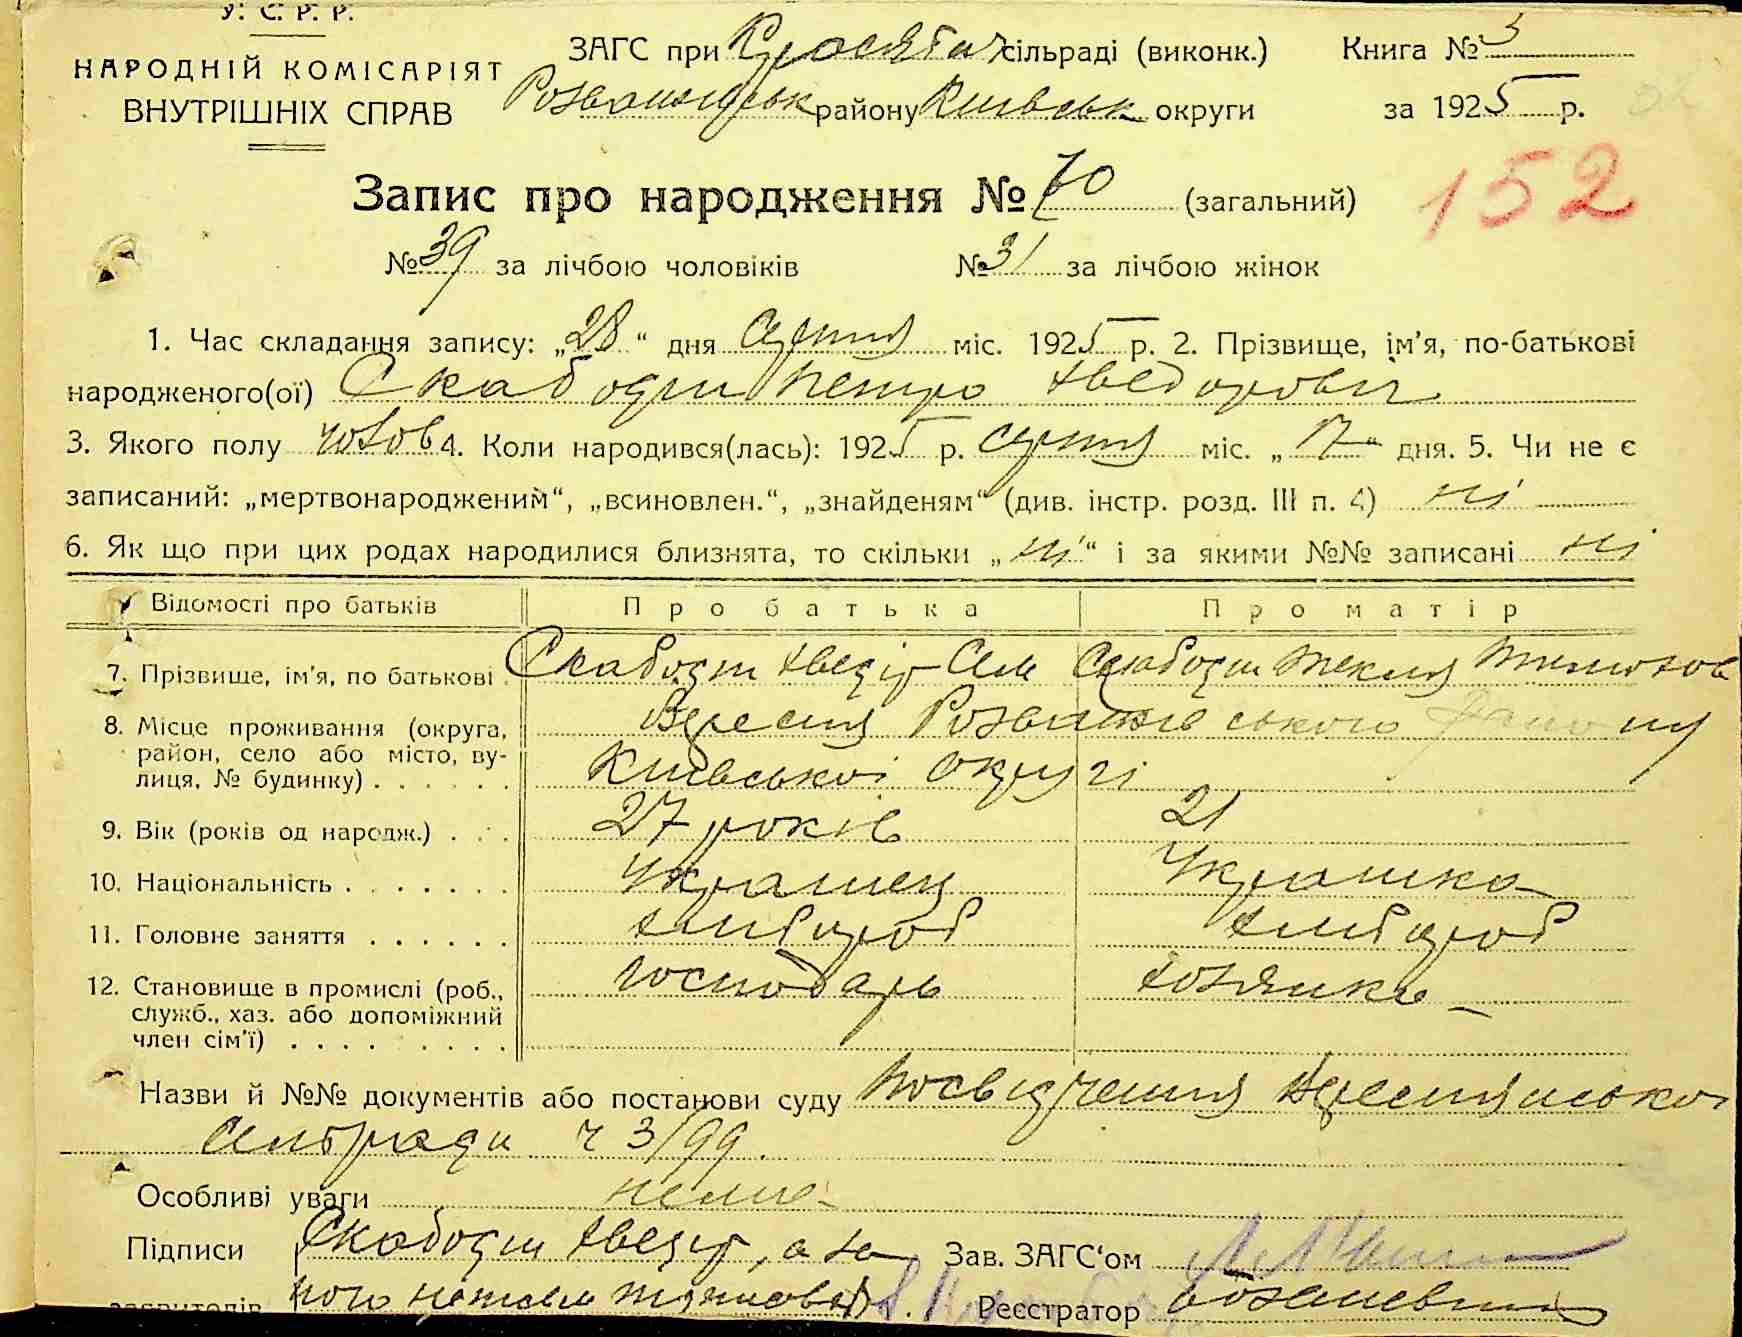 У. С. Р. Р.
НАРОДНІЙ КОМІСАРІЯТ
ВНУТРІШНІХ СПРАВ
ЗАГС при Кросятич сільраді (виконк.)
Розважиськ району Київськ округи
Книга № 3
за 1925 р.
152
Запис про народження № 70 (загальний)
№ 39 за лічбою чоловіків № 31 за лічбою жінок
1. Час складання запису: „28“ дня серпня міс. 1925 р. 2. Прізвище, ім'я, по-батькові
народженого(ої) Скабодзи Петро Хведорович
3. Якого полу чолов 4. Коли народився(лась): 1925 р. серпня міс. „17“ дня. 5. Чи не є
записаний: „мертвонародженим“, „всиновлен.“, „знайденям“ (див. інстр. розд. III п. 4) ні
6. Як що при цих родах народилися близнята, то скільки „ні“ і за якими №№ записані ні
Відомості про батьків Про батька Про матір
7. Прізвище, ім'я, по батькові Хведір Сем Текля
8. Місце проживання (округа, район, село або місто, вулиця, № будинку) Вересня Розважівського району
Київської округи
9. Вік (років од народж.) 27 років 21
10. Національність Українец Українка
11. Головне заняття хлібороб хлібороб
12. Становище в промислі (роб., служб., хаз. або допоміжний член сім'ї) господарь хозяйка
Назви й №№ документів або постанови суду Посвідчення Вереснянської
Сельради ч 3/99.
Особливі уваги немає
Підписи Хведір, а за Зав. ЗАГС'ом
заявителів його Реєстратор